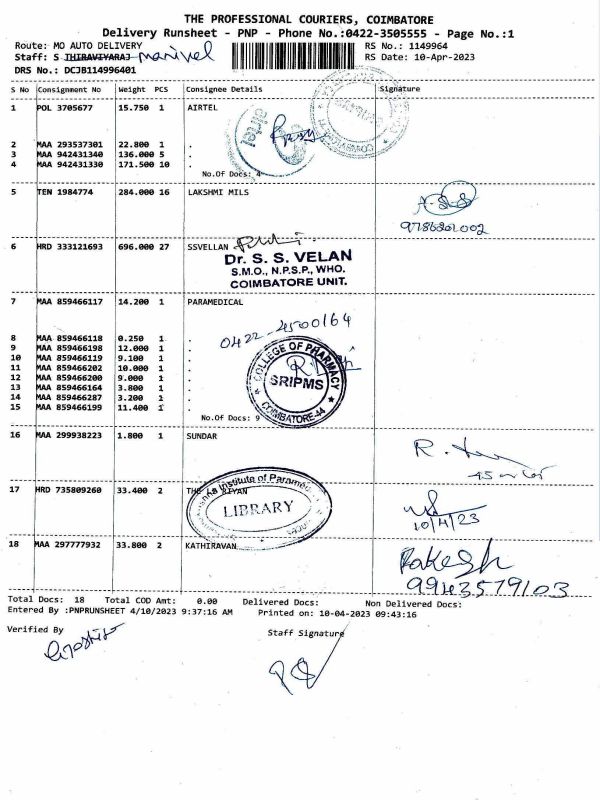 THE PROFESSIONAL COURIERS, COIMBATORE
Delivery Runsheet - PNP - Phone No.:0422-3505555 - Page No.:1
Route: MO AUTO DELIVERY RS No.: 1149964
Staff: S THIRAVIYARAJ manivel RS Date: 10-Apr-2023
DRS No.: DCJB114996401
S No Consignment No Weight PCS Consignee Details Signature
1 POL 3705677 15.750 1 AIRTEL
airtel
2 MAA 293537301 22.800 1 .
3 MAA 942431340 136.000 5 .
4 MAA 942431330 171.500 10 .
No.Of Docs: 4
5 TEN 1984774 284.000 16 LAKSHMI MILS
9786201002
6 HRD 333121693 696.000 27 SSVELLAN
Dr. S. S. VELAN
S.M.O., N.P.S.P., WHO.
COIMBATORE UNIT.
7 MAA 859466117 14.200 1 PARAMEDICAL
0422-4500164
8 MAA 859466118 0.250 1 .
9 MAA 859466198 12.000 1 .
10 MAA 859466119 9.100 1 .
11 MAA 859466202 10.000 1 .
12 MAA 859466200 9.000 1 .
13 MAA 859466164 3.800 1 .
14 MAA 859466287 3.200 1 .
15 MAA 859466199 11.400 1 .
COLLEGE OF PHARMACY
SRIPMS
COIMBATORE-44
No.Of Docs: 9
16 MAA 299938223 1.800 1 SUNDAR
17 HRD 735809260 33.400 2
Institute of Paramed
LIBRARY
10/4/23
18 MAA 297777932 33.800 2 KATHIRAVAN
Rakesh
9943579103
Total Docs: 18 Total COD Amt: 0.00 Delivered Docs: Non Delivered Docs:
Entered By :PNPRUNSHEET 4/10/2023 9:37:16 AM Printed on: 10-04-2023 09:43:16
Verified By Staff Signature